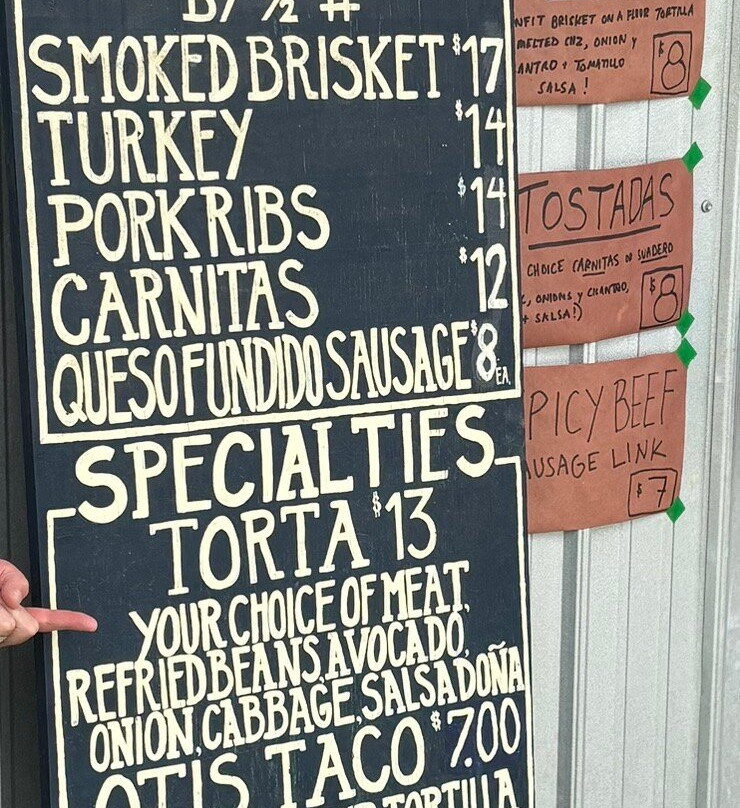 BY ½ #
SMOKED BRISKET $17
TURKEY $14
PORK RIBS $14
CARNITAS $12
QUESO FUNDIDO SAUSAGE $8 EA.
SPECIALTIES
TORTA $13
YOUR CHOICE OF MEAT,
REFRIED BEANS, AVOCADO,
ONION, CABBAGE, SALSA DOÑA
OTIS TACO $7.00
TORTILLA
NFIT BRISKET ON A FLOUR TORTILLA
MELTED CHZ, ONION y
ANTRO + TOMATILLO
SALSA!
$8
TOSTADAS
CHOICE CARNITAS or SUADERO
, ONIONS y CILANTRO,
+ SALSA!)
$8
PICY BEEF
AUSAGE LINK
$7